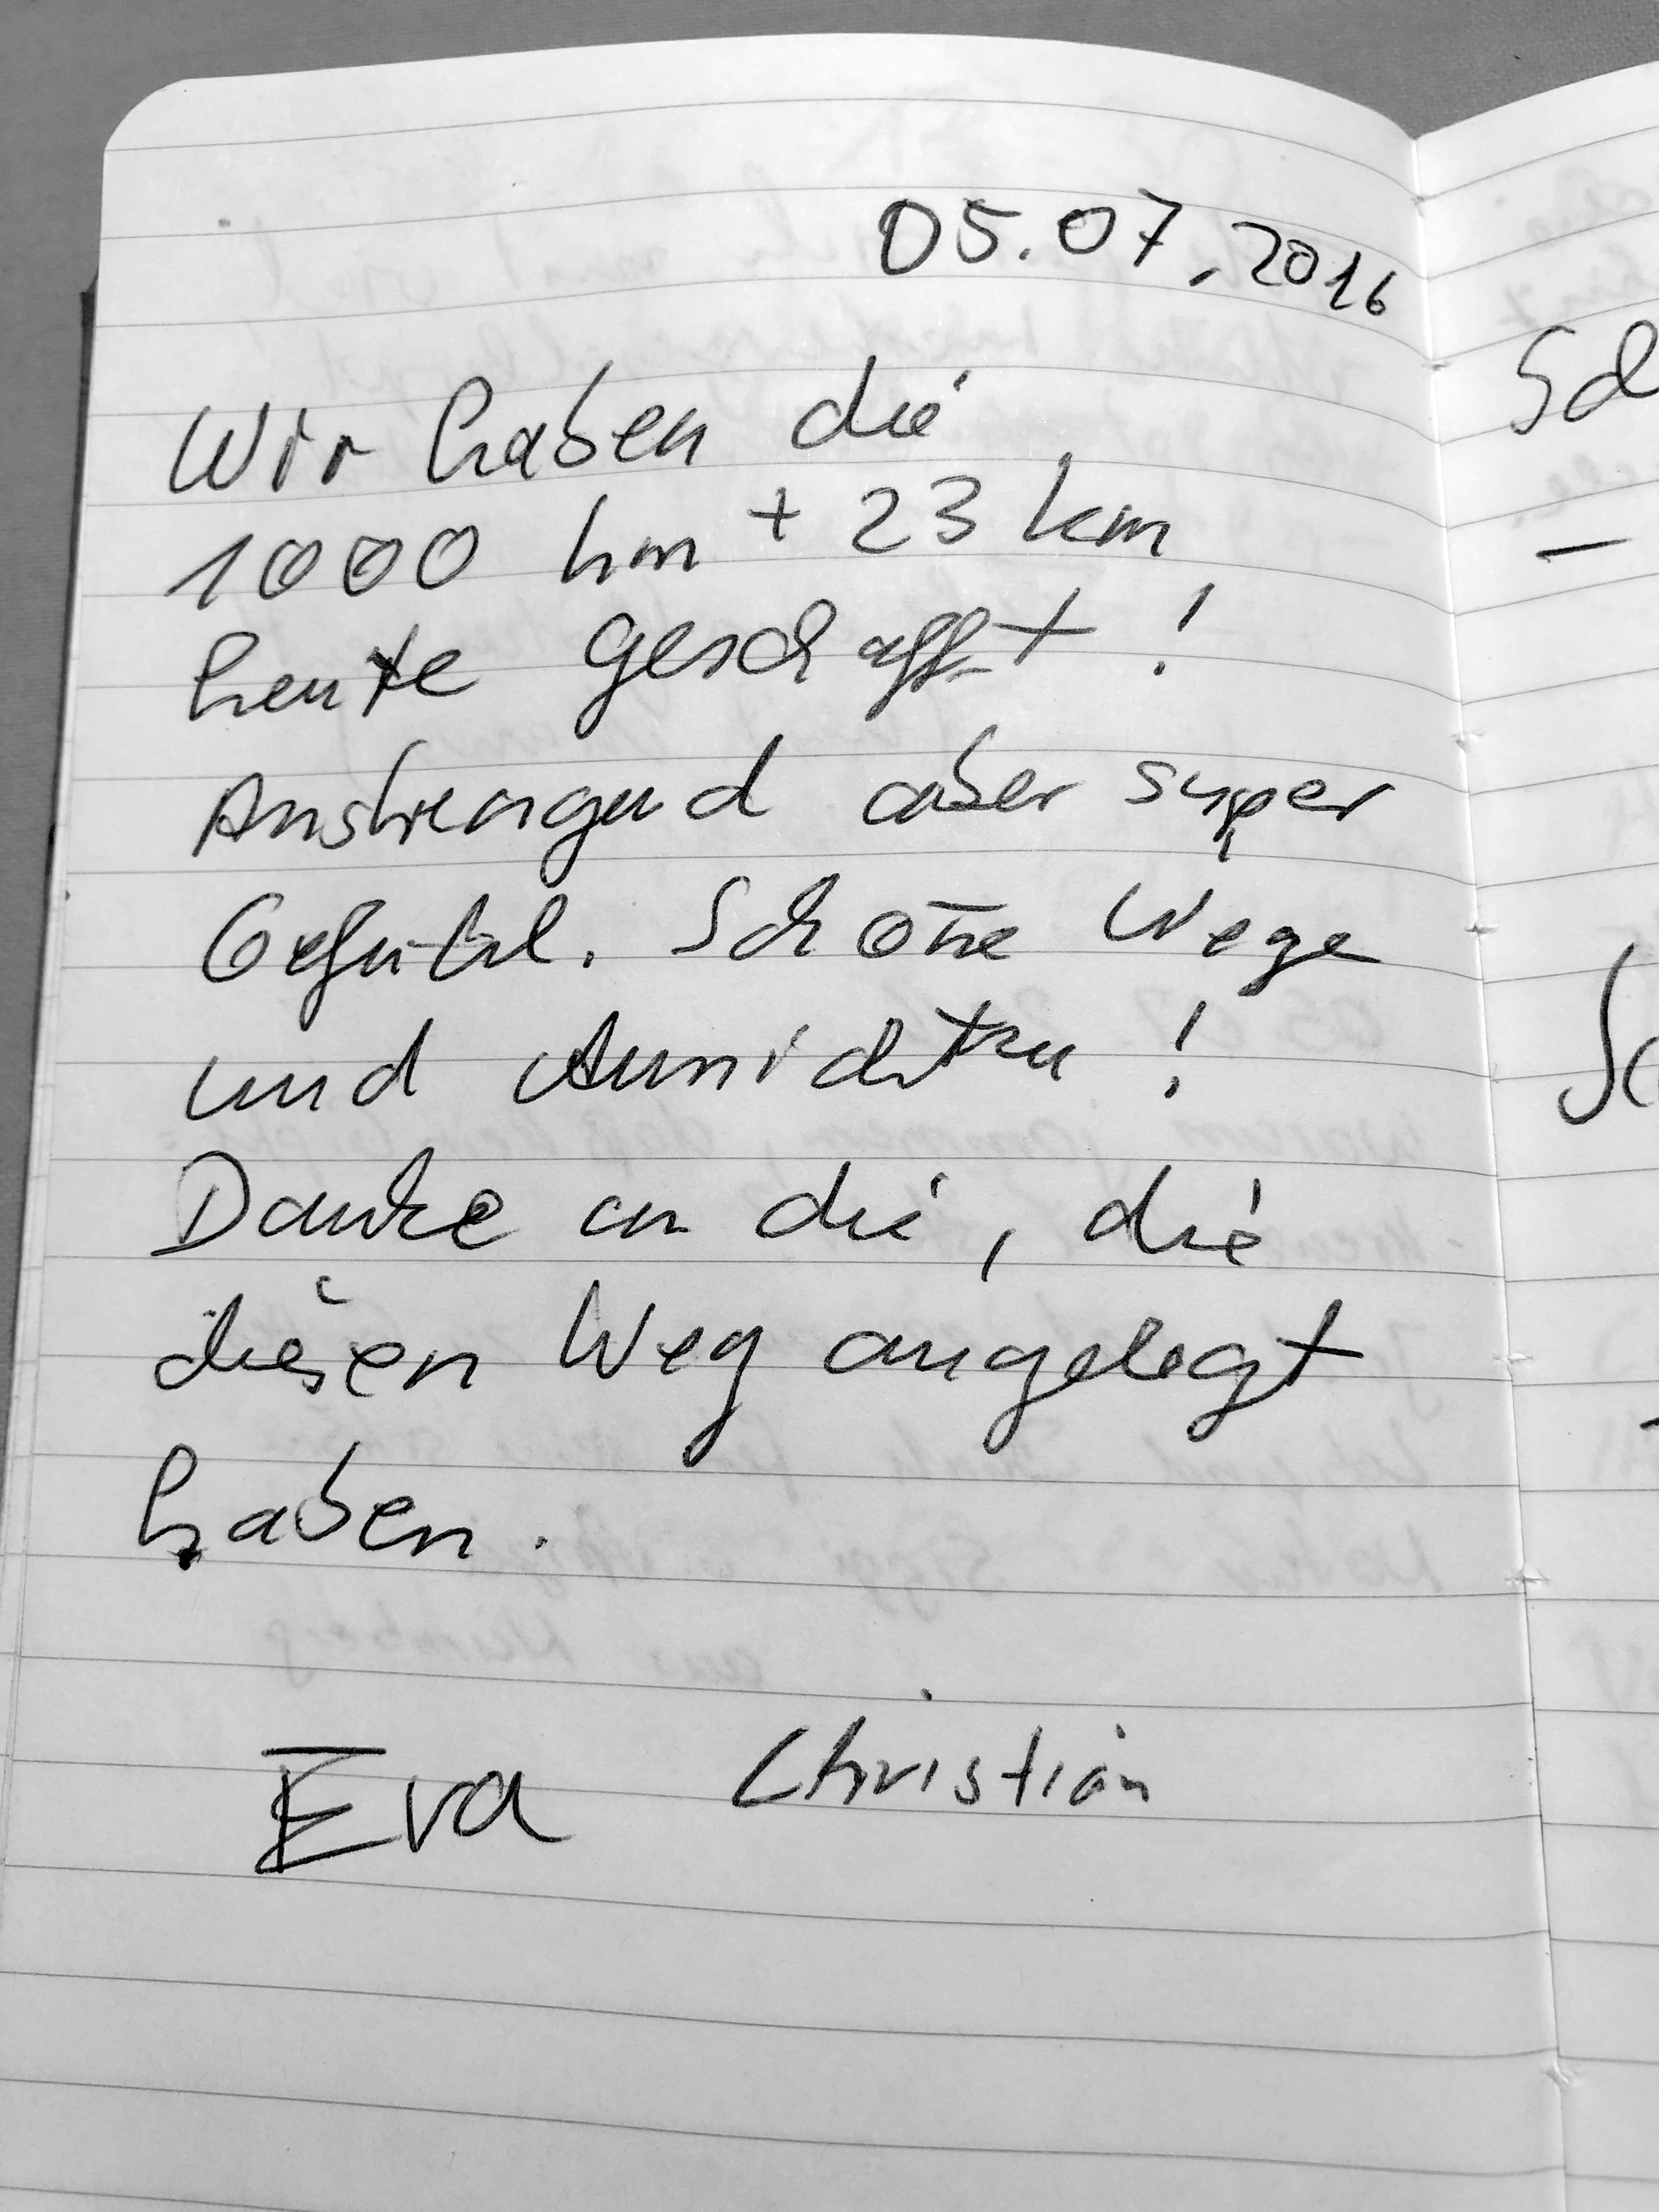 05.07.2016
Wir haben die
1000 hm + 23 km
heute geschafft!
Anstrengend aber super
Gefühl. Schöne Wege
und Aussichten!
Danke an die, die
diesen Weg angelegt
haben.
Eva Christian